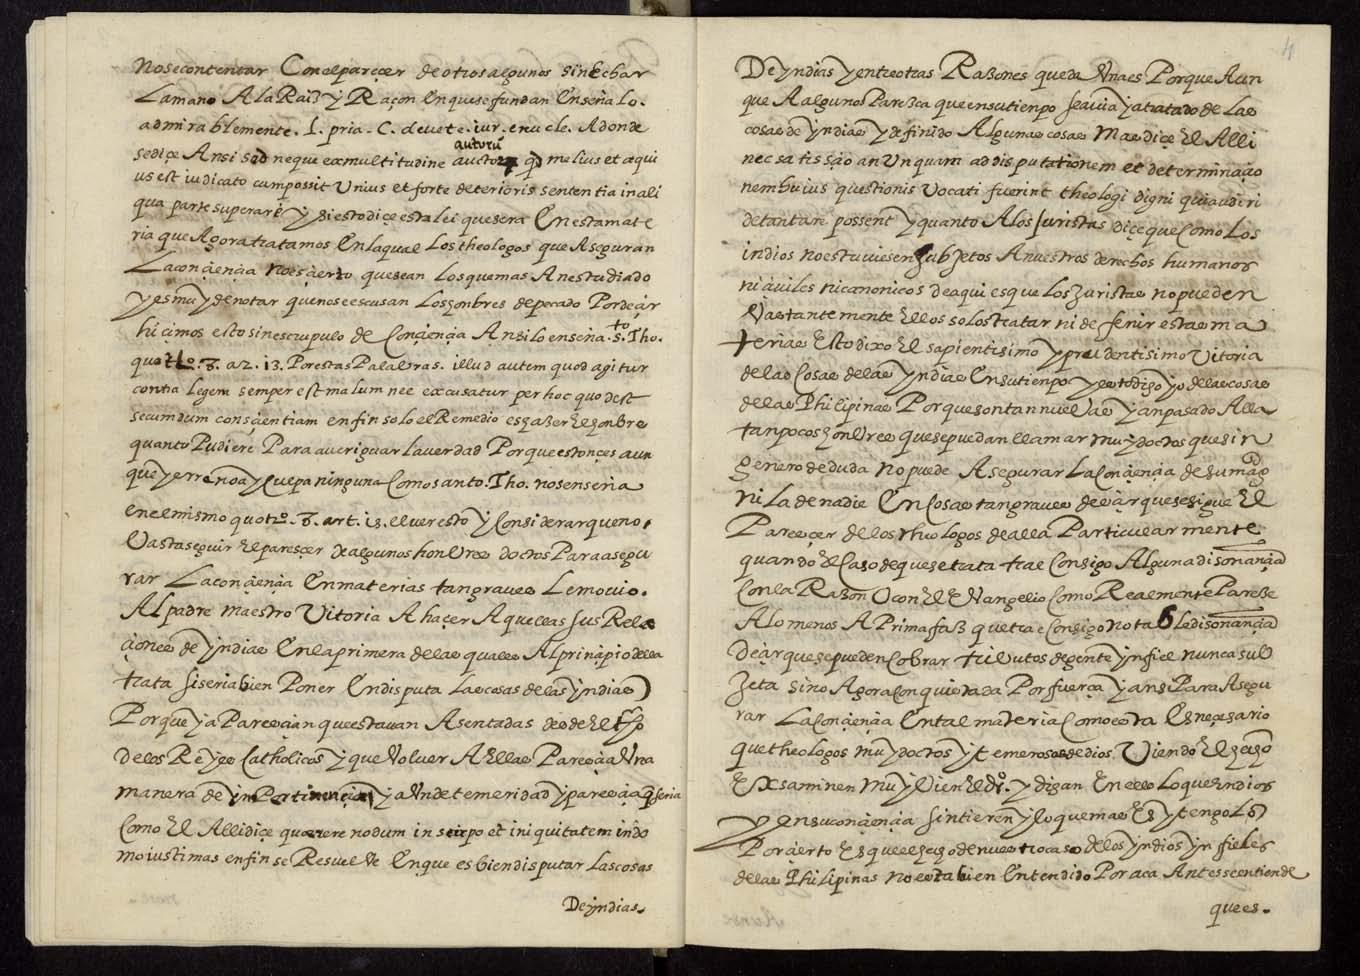 no se contentar Con el pareçer de otros algunos sin Echar
La mano A la Raiz y Raçon en que se fundan Enseña lo.
admirablemente. l. pria. C. de vete. iur. enucle. Adonde
se diçe Ansi sed neque ex multitudine auctorũ qd melius et æqui
autorũ
us est iudicato cum possit Unius et forte deterioris sententia in ali
qua parte superare y si esto diçe esta lei que sera En esta mate
ria que Agora tratamos En la qual Los theologos que Aseguran
La conçiençia no es çierto que sean Los que mas An estudiado
y es muy de notar que no se escusan Los honbres de pecado Por deçir
hiçimos esto sin escrupulo de Conçiençia Ansi lo enseña .sto. Tho.
quotlo. 3. a2. 13. Por estas Palabras. illud autem quod agitur
contra legem semper est malum nec excusatur per hoc quod est
secundum consçientiam en fin solo el Remedio es hazer el honbre
quanto Pudiere Para averiguar la verdad Porque estonçes aun
que yerre no ay Culpa ninguna Como santo. Tho. nos enseña
en el mismo quotlo. 3. art. 15. el ver esto y Considerar que no.
Vasta seguir el paresçer de algunos honbres doctos Para asegu
rar La conçiençia En materias tan graves Le movio.
Al padre maestro Vitoria A haçer Aquellas sus Rela
çiones de yndias En la primera de las quales Al prinçipio della
trata si seria bien Poner En disputa Las cosas de las yndias
Porque ya Pareçian que estavan Asentadas desde el tpo
de los Reyes Catholicos y que Volver A ellas Pareçia Una
manera de ynPertinençia y aUn de temeridad y pareçia q seria
Como el Alli diçe quærere nodum in scirpo et iniquitatem in do
mo iusti mas en fin se Resuelve En que es bien disputar Las cosas
De yndias.
4
De yndias y entre otras Razones que da Una es Porque Aun
que A algunos Parezca que en su tienpo se avia ya tratado de Las
cosas de yndias y definido Algunas cosas Mas diçe el Alli
nec satis sçio an Unquam ad disputationem et determinaçio
nem huius questionis Vocati fuerint theologi digni qui audiri
de tanta re possent y quanto A los Juristas diçe que Como Los
indios no estuviesen subjetos A nuestros derechos humanos
ni çiviles ni canonicos de aqui es que Los Juristas no pueden
Vastantemente ellos solos tratar ni definir estas ma
terias Esto dixo el sapientisimo y prudentisimo Vitoria
de las Cosas de las yndias En su tienpo y esto digo yo de las cosas
de las Philipinas Porque son tan nuevas y an pasado Alla
tan pocos honbres que se puedan llamar muy doctos que sin
genero de duda no puede Asegurar La Conçiençia de su magd
ni La de nadie En Cosas tan graves deçir que se sigue el
Pareçer de los theologos de alla Particularmente
quando el Caso de que se trata trae Consigo Alguna disonançia
Con la Razon O con el EVangelio Como Realmente Pareçe
A lo menos A Prima faz que trae Consigo notable disonançia
Deçir que se pueden Cobrar tributos de gente ynfiel nunca sub
jeta sino Agora Conquistada Por fuerça y ansi Para Asegu
rar La Conçiençia En tal materia Como esta Es neçesario
que theologos muy doctos y temerosos de dios Viendo el hecho
Examinen muy bien el do. y digan En ello Lo que En dios
y En su conçiençia sintieren y lo que mas Es y tengo Lo
Por çierto Es que el hecho de nuestro caso de los yndios ynfieles
de las Philipinas no esta bien Entendido Por aca Antes se entiende
que es.